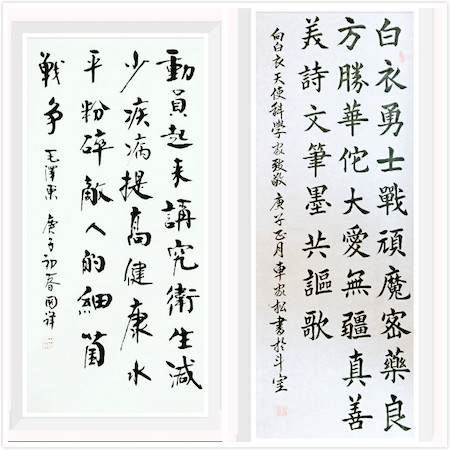 動員起来講究衛生減
少疾病提高健康水
平粉碎敵人的細菌
戰争 毛澤東 庚子初春国祥
白衣勇士戰頑魔密藥良
方勝華佗大愛無疆真善
美詩文筆墨共謳歌
向白衣天使科學家致敬 庚子正月車家松書於斗室